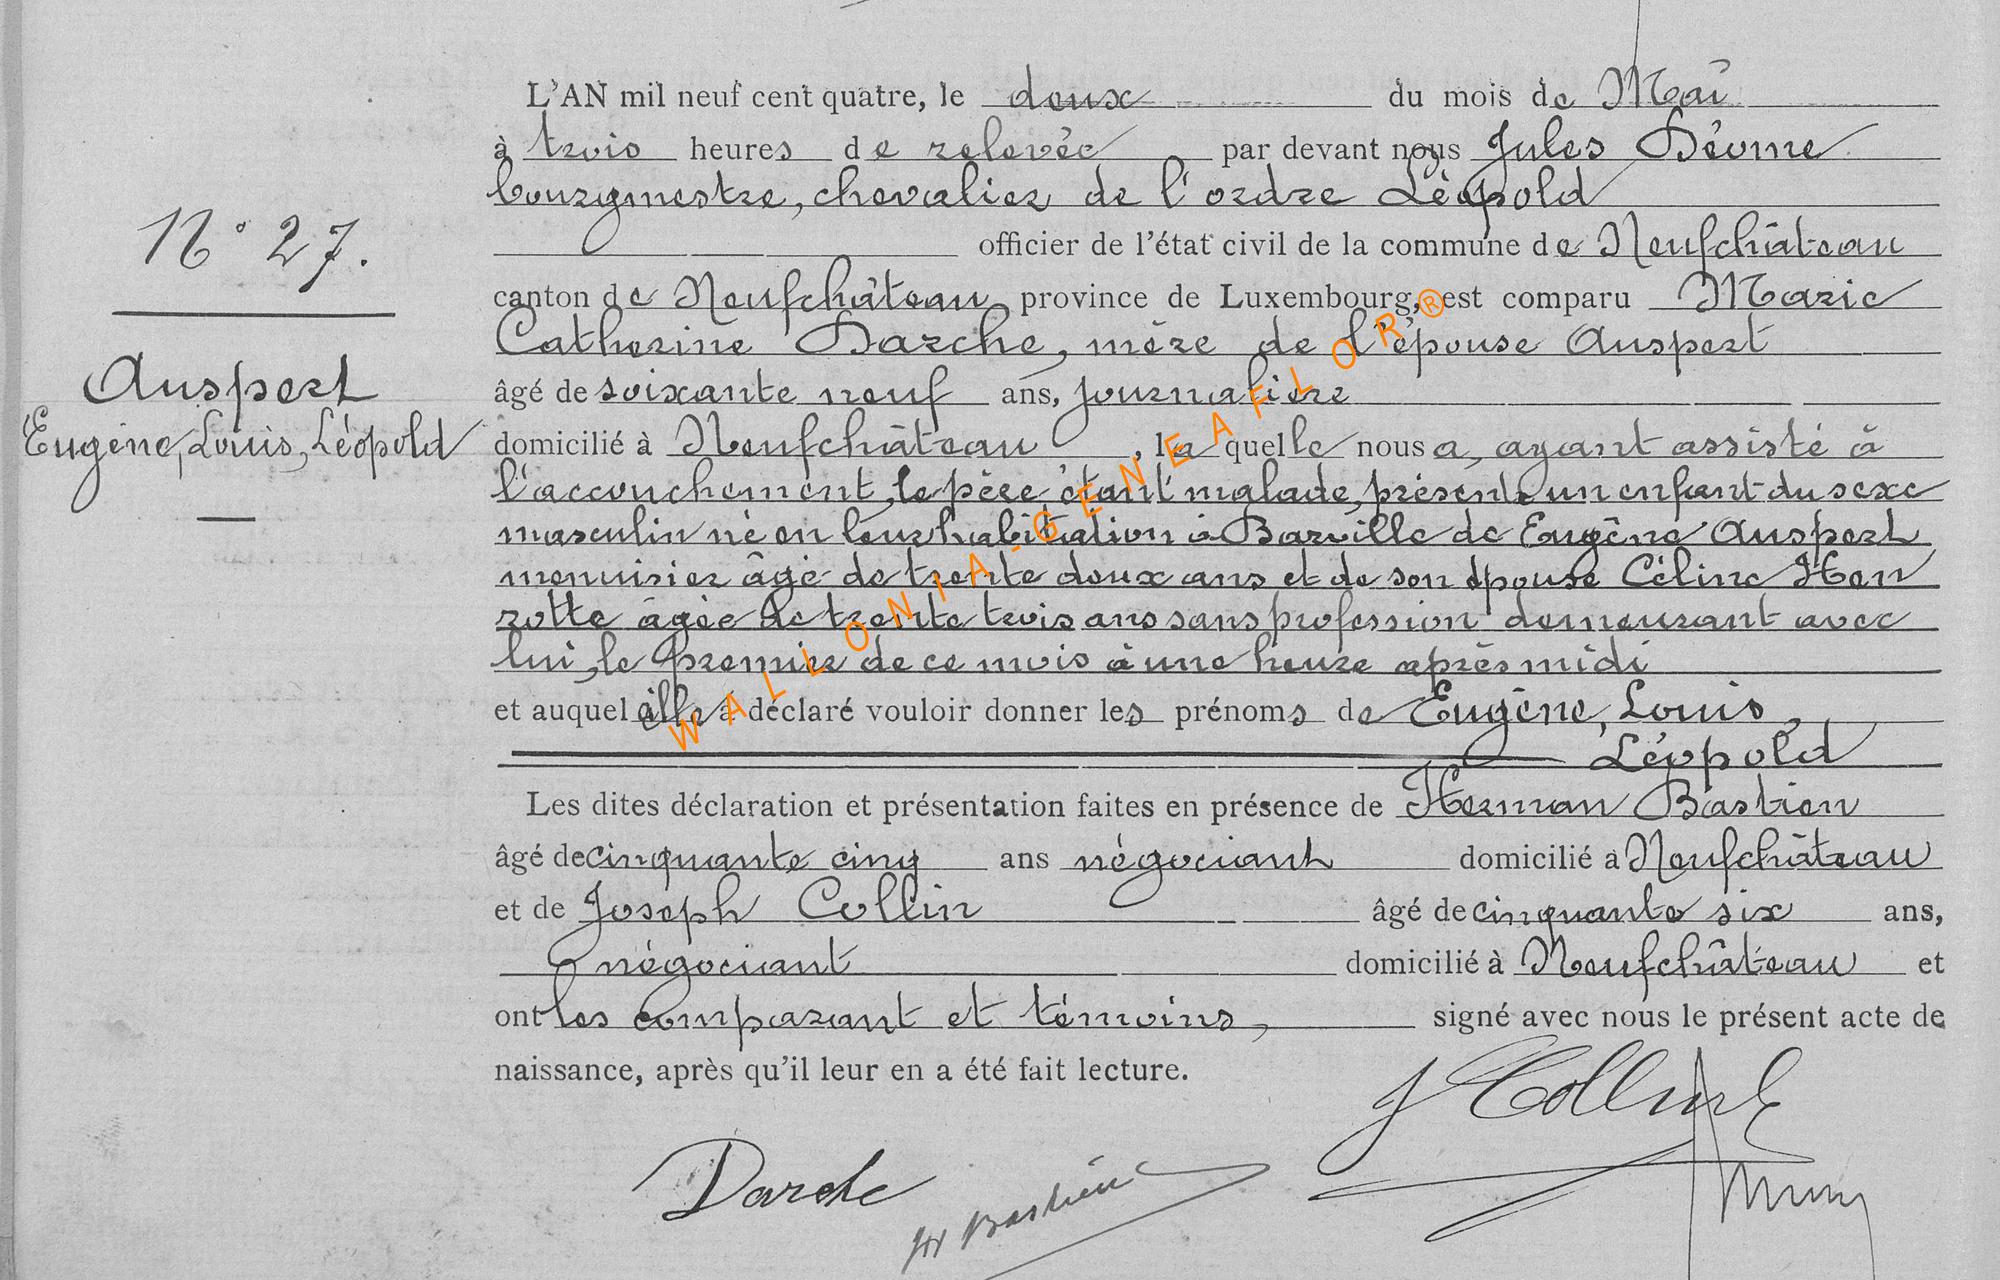 L'AN mil neuf cent quatre, le deux du mois de Mai
à trois heures de relevée par devant nous Jules
bourgmestre, chevalier de l'ordre Léopold
N° 27.
officier de l'état civil de la commune de Neufchâteau
canton de Neufchâteau, province de Luxembourg, est comparu Marie
Catherine Darche, mère de l'épouse Auspert
Auspert
âgé de soixante neuf ans, journalière
Eugène, Louis, Léopold
domicilié à Neufchâteau, la quelle nous a, ayant assisté à
l'accouchement, le père étant malade, présenté un enfant du sexe
masculin né en leur habitation à Warville de Eugène Auspert
menuisier âgé de trente deux ans et de son épouse Céline Hen
rotte âgée de trente trois ans sans profession demeurant avec
lui, le premier de ce mois à une heure après midi
et auquel elle a déclaré vouloir donner les prénoms de Eugène, Louis,
Léopold
Les dites déclaration et présentation faites en présence de Herman Bastien
âgé de cinquante cinq ans négociant domicilié à Neufchâteau
et de Joseph Collin âgé de cinquante six ans,
négociant domicilié à Neufchâteau et
ont les comparant et témoins, signé avec nous le présent acte de
naissance, après qu'il leur en a été fait lecture.
J Collin
Darche
H Bastien
WALLONIA-GENEAFLOR®